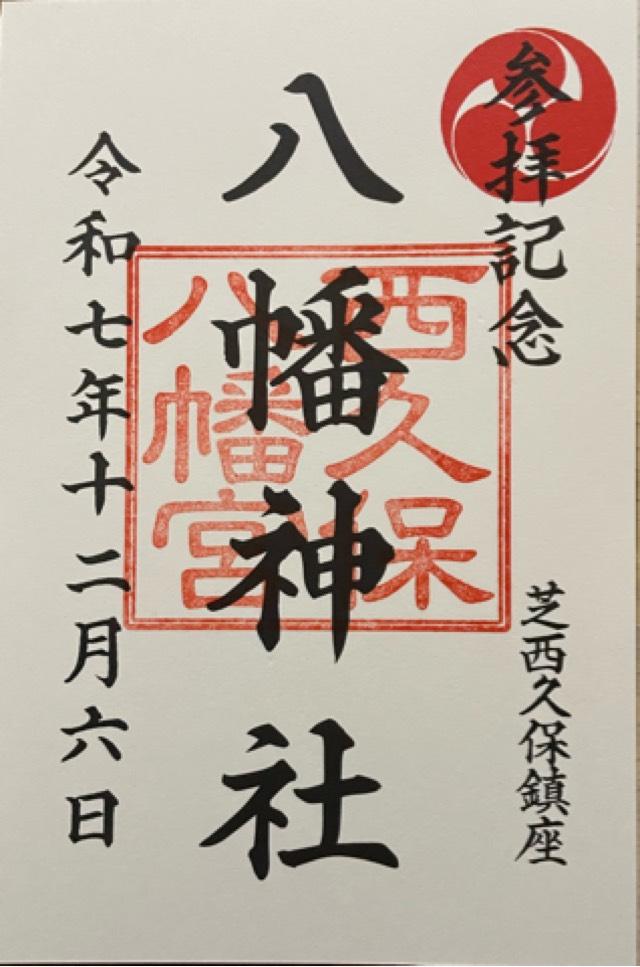 参拝記念
芝西久保鎮座
八幡神社
西久保
八幡宮
令和七年十二月六日